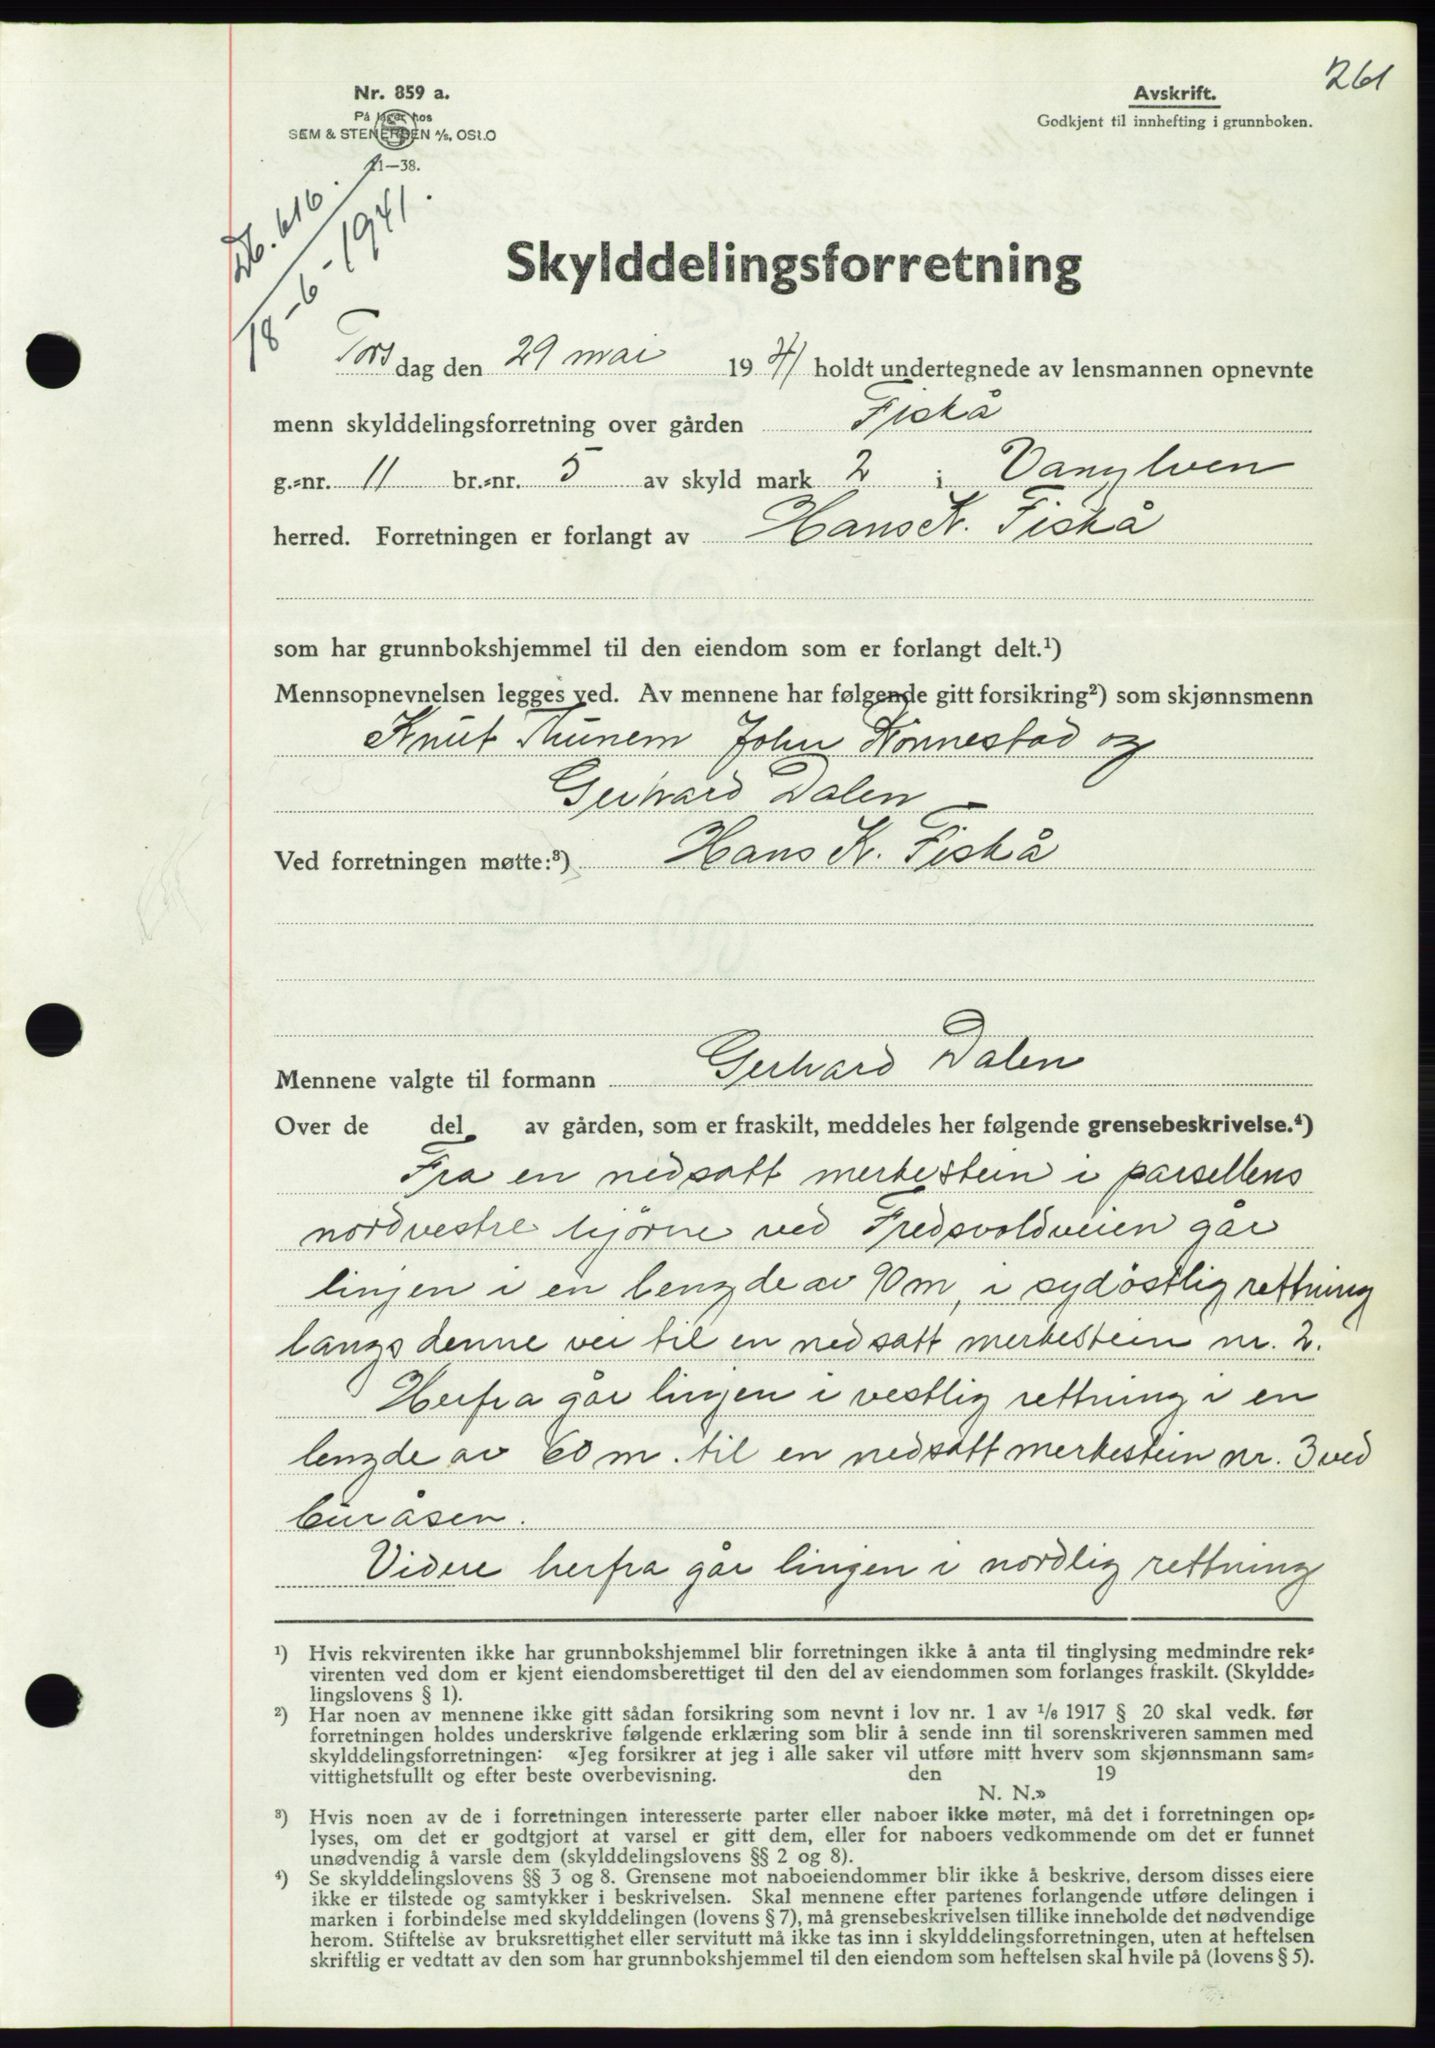 261
Nr. 859 a.
På lager hos
SEM & STENERSEN A/S, OSLO
11—38.
Avskrift.
Godkjent til innhefting i grunnboken.
Db. 616.
18-6-1941.
Skylddelingsforretning
Torsdag den 29 mai 1941 holdt undertegnede av lensmannen opnevnte
menn skylddelingsforretning over gården Fiskå
g.-nr. 11 br.-nr. 5 av skyld mark 2 i Vanylven
herred. Forretningen er forlangt av Hans K. Fiskå
som har grunnbokshjemmel til den eiendom som er forlangt delt.¹)
Mennsopnevnelsen legges ved. Av mennene har følgende gitt forsikring²) som skjønnsmenn
Knut Thunem John Rönnestad og
Gerhard Dalen
Ved forretningen møtte:³) Hans K. Fiskå
Mennene valgte til formann Gerhard Dalen
Over de del av gården, som er fraskilt, meddeles her følgende grensebeskrivelse.⁴)
Fra en nedsatt merkestein i parsellens
nordvestre hjörne ved Fredsvoldveien går
linjen i en lengde av 90 m, i sydöstlig rettning
langs denne vei til en nedsatt merkestein nr. 2.
Herfra går linjen i vestlig rettning i en
lengde av 60 m. til en nedsatt merkestein nr. 3 ved
Videre herfra går linjen i nordlig rettning
¹) Hvis rekvirenten ikke har grunnbokshjemmel blir forretningen ikke å anta til tinglysing medmindre rek-
virenten ved dom er kjent eiendomsberettiget til den del av eiendommen som forlanges fraskilt. (Skyldde-
lingslovens § 1).
²) Har noen av mennene ikke gitt sådan forsikring som nevnt i lov nr. 1 av 1/6 1917 § 20 skal vedk. før
forretningen holdes underskrive følgende erklæring som blir å sende inn til sorenskriveren sammen med
skylddelingsforretningen: «Jeg forsikrer at jeg i alle saker vil utføre mitt hverv som skjønnsmann sam-
vittighetsfullt og efter beste overbevisning. den 19
N. N.»
³) Hvis noen av de i forretningen interesserte parter eller naboer ikke møter, må det i forretningen op-
lyses, om det er godtgjort at varsel er gitt dem, eller for naboers vedkommende om det er funnet
unødvendig å varsle dem (skylddelingslovens §§ 2 og 8).
⁴) Se skylddelingslovens §§ 3 og 8. Grensene mot naboeiendommer blir ikke å beskrive, dersom disses eiere
ikke er tilstede og samtykker i beskrivelsen. Skal mennene efter partenes forlangende utføre delingen i
marken i forbindelse med skylddelingen (lovens § 7), må grensebeskrivelsen tillike inneholde det nødvendige
herom. Stiftelse av bruksrettighet eller servitutt må ikke tas inn i skylddelingsforretningen, uten at heftelsen
skriftlig er vedtatt av den som har grunnbokshjemmel til den eiendom som heftelsen skal hvile på (lovens § 5).